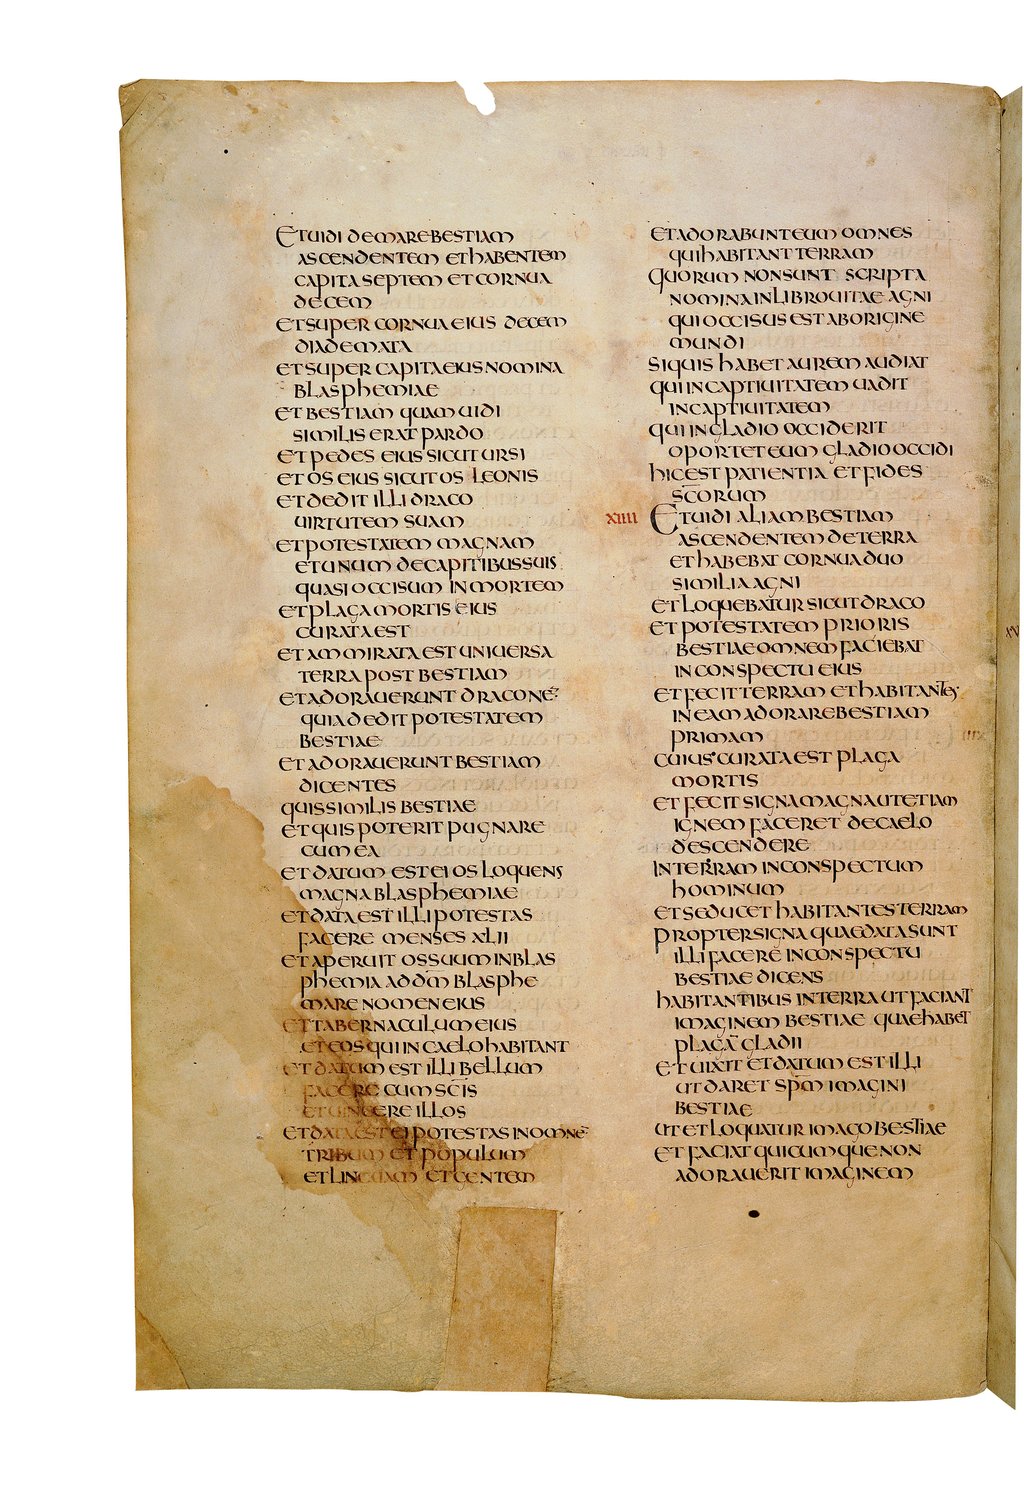 Et uidi de mare bestiam
ascendentem et habentem
capita septem et cornua
decem
et super cornua eius decem
diademata
et super capita eius nomina
blasphemiae
et bestiam quam uidi
similis erat pardo
et pedes eius sicut ursi
et os eius sicut os leonis
et dedit illi draco
uirtutem suam
et potestatem magnam
et unum de capitibus suis
quasi occisum in mortem
et plaga mortis eius
curata est
et ammirata est uniuersa
terra post bestiam
et adorauerunt draconē
quia dedit potestatem
bestiae
et adorauerunt bestiam
dicentes
quis similis bestiae
et quis poterit pugnare
cum ea
et datum est ei os loquens
magna blasphemiae
et data est illi potestas
facere menses xlii
et aperuit os suum in blas
phemia ad dm̄ blasphe
mare nomen eius
et tabernaculum eius
et eos qui in caelo habitant
et datum est illi bellum
facere cum sc̄is
et uincere illos
et data est ei potestas in omnē
tribum et populum
et linguam et gentem
et adorabunt eum omnes
qui habitant terram
quorum non sunt scripta
nomina in libro uitae agni
qui occisus est ab origine
mundi
si quis habet aurem audiat
qui in captiuitatem uadit
in captiuitatem
qui in gladio occiderit
oportet eum gladio occidi
hic est patientia et fides
sc̄orum
xiiii Et uidi aliam bestiam
ascendentem de terra
et habebat cornua duo
similia agni
et loquebatur sicut draco
et potestatem prioris
bestiae omnem faciebat
in conspectu eius
et fecit terram et habitantes
in eam adorare bestiam
primam
cuius curata est plaga
mortis
et fecit signa magna ut etiam
ignem faceret de caelo
descendere
in terram in conspectum
hominum
et seducet habitantes terram
propter signa quae data sunt
illi facere in conspectu
bestiae dicens
habitantibus in terra ut faciant
imaginem bestiae quae habet
plagā gladii
et uixit et datum est illi
ut daret spm̄ imagini
bestiae
ut et loquatur imago bestiae
et faciat quicumque non
adorauerit imaginem